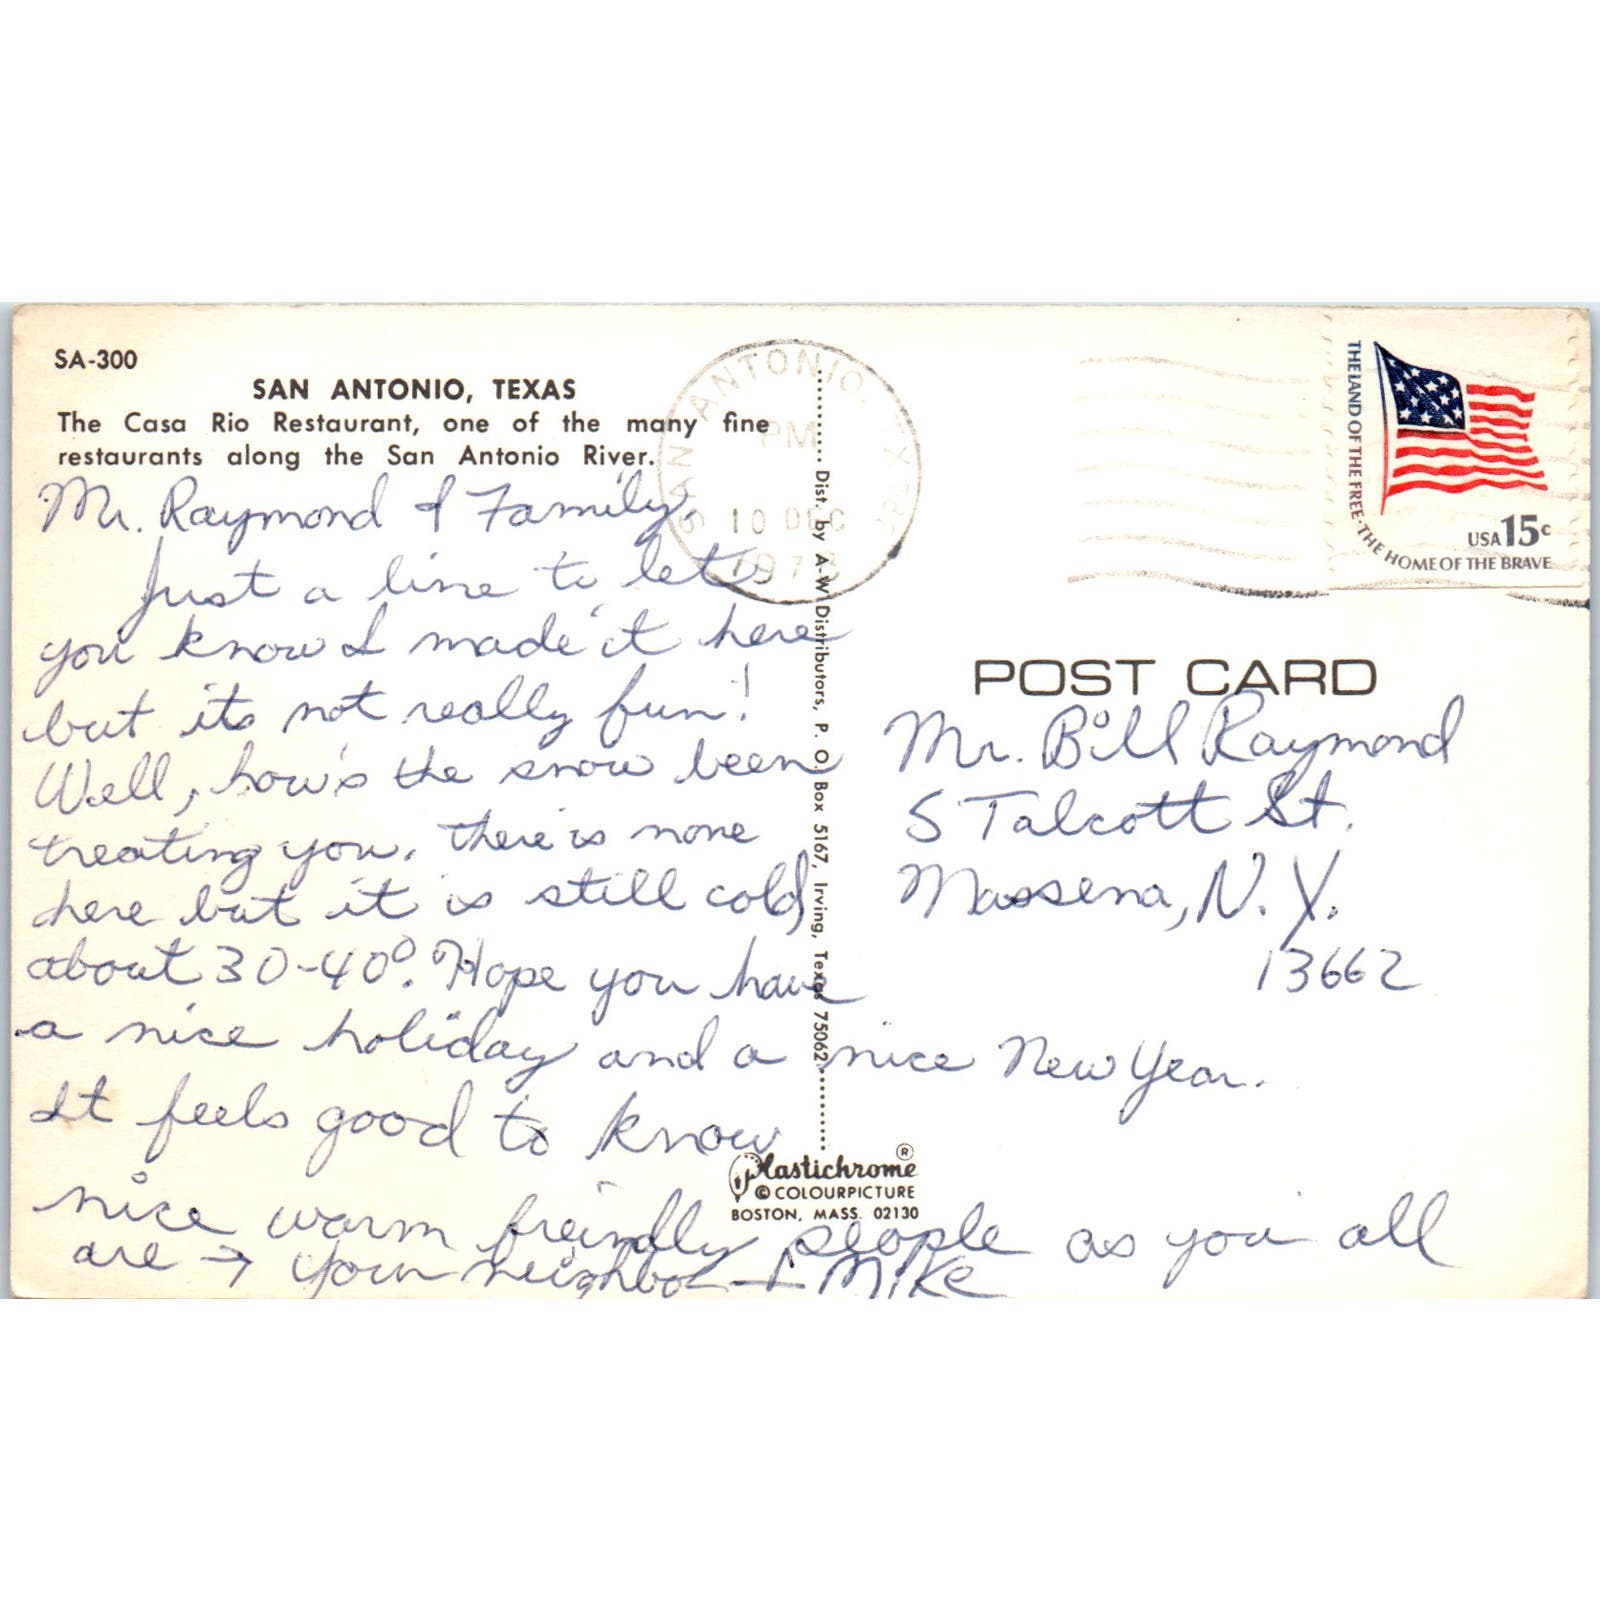 SA-300
SAN ANTONIO, TEXAS
The Casa Rio Restaurant, one of the many fine
restaurants along the San Antonio River.
Mr. Raymond & Family,
Just a line to let
you know I made it here
but its not really fun!
Well, how's the snow been
treating you. there is none
here but it is still cold
about 30-40°. Hope you have
a nice holiday and a nice New Year.
It feels good to know
nice warm freindly people as you all
are → your neighbor Mike
SAN ANTONIO, TX
PM
10 DEC
197
Dist. by A-W Distributors, P. O. Box 5167, Irving, Texas 75062
Plastichrome ®
© COLOURPICTURE
BOSTON, MASS. 02130
THE LAND OF THE FREE · THE HOME OF THE BRAVE
USA 15c
POST CARD
Mr. Bill Raymond
5 Talcott St.
Massena, N. Y.
13662